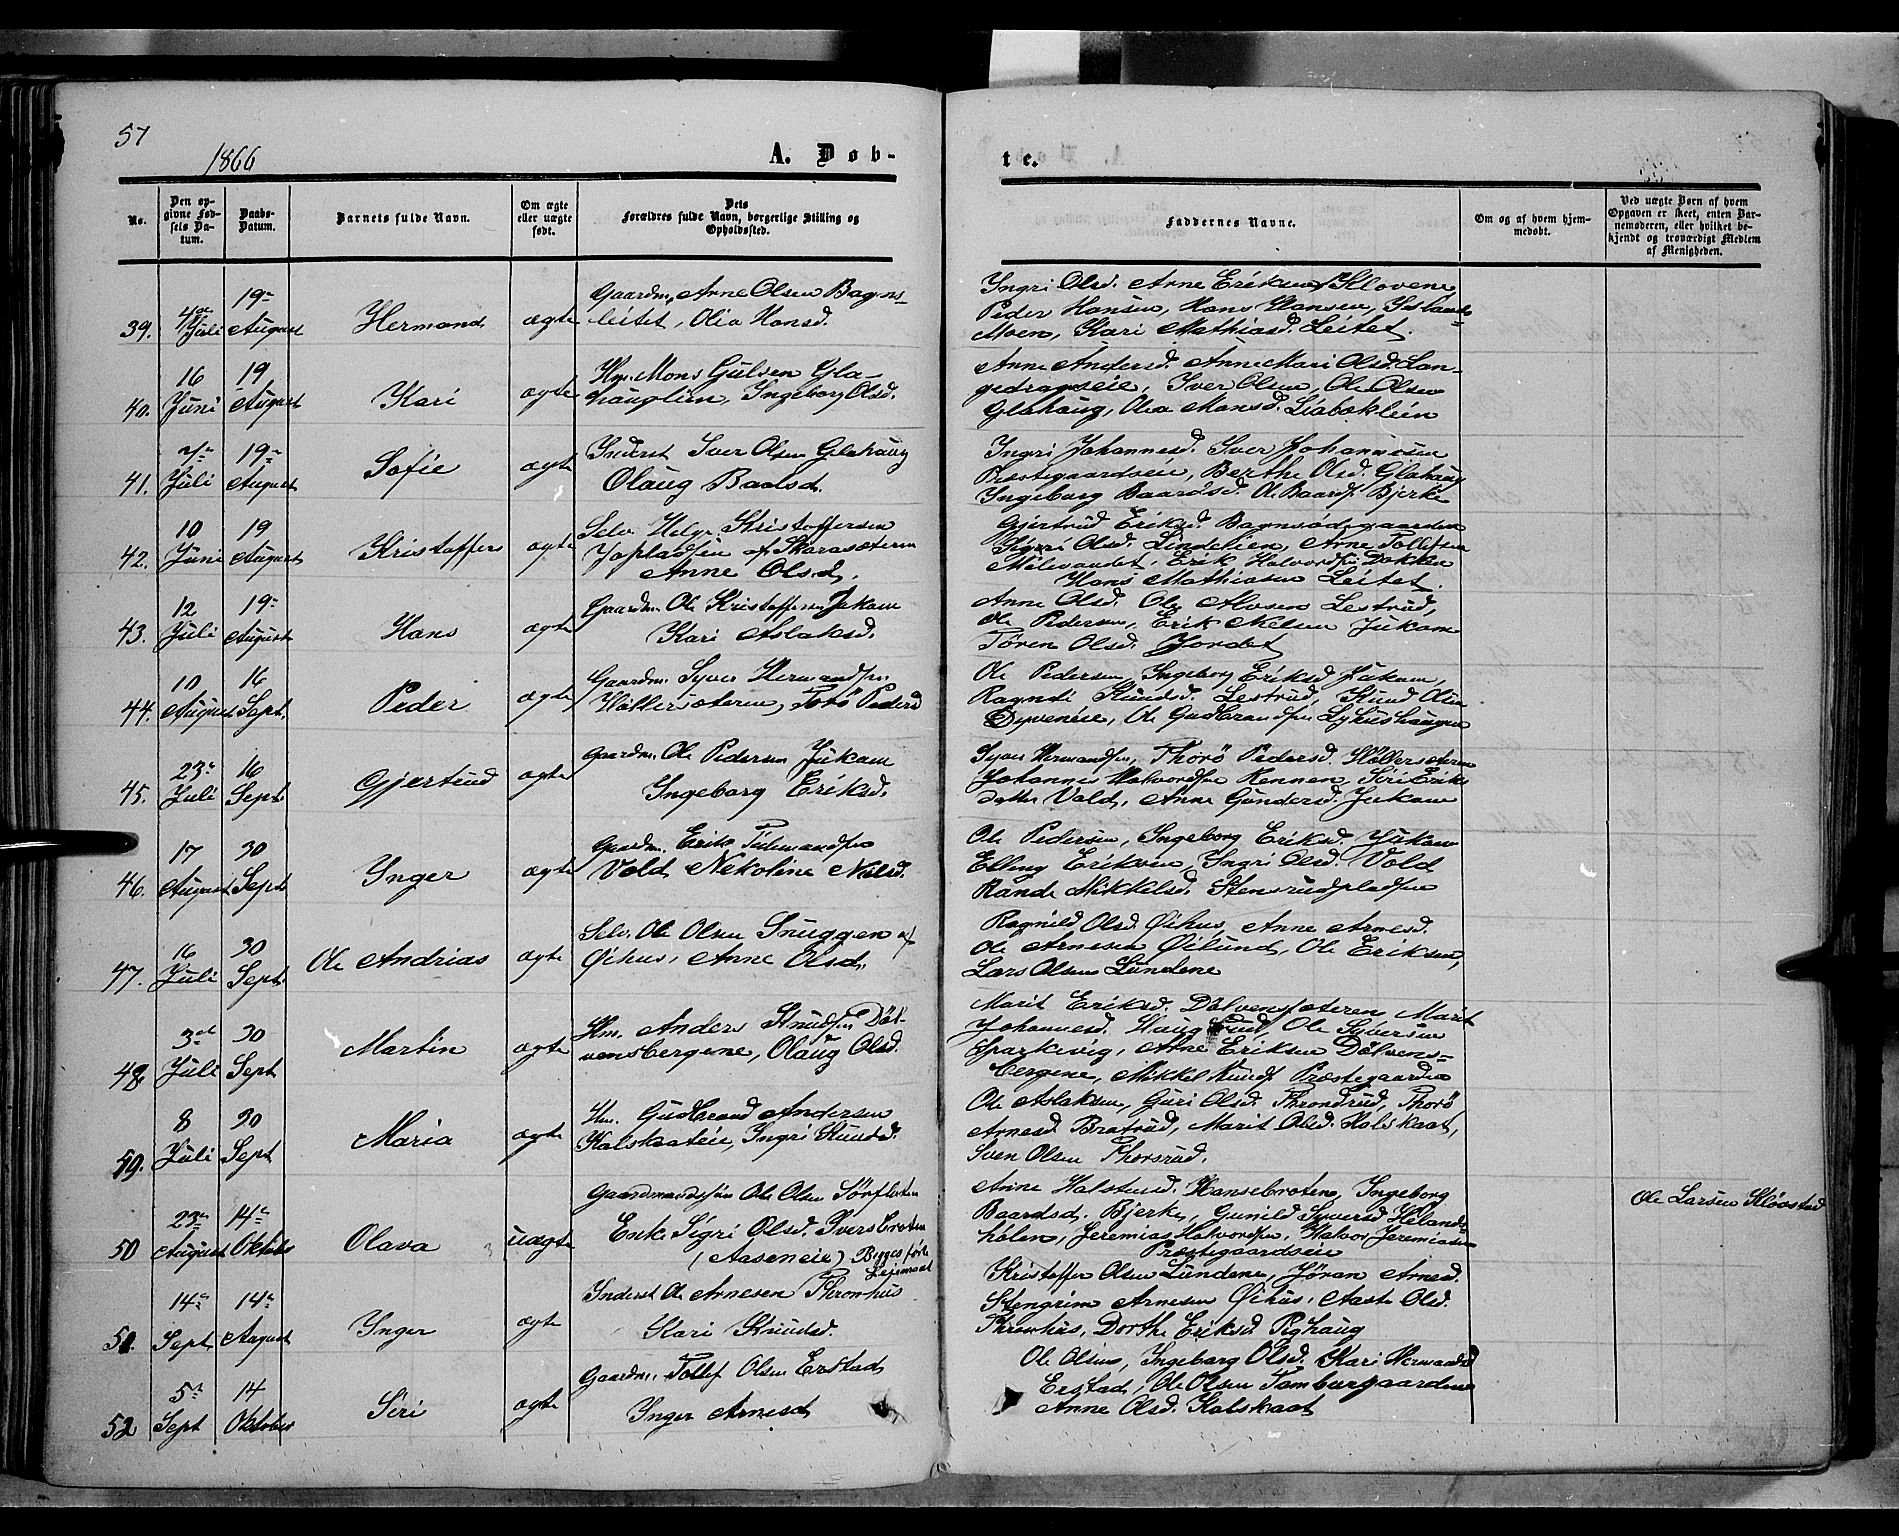 57
1866
A. Døb-
te.
No.
Den op-
givne Fød-
sels Da-
tum.
Daabs-
Datum.
Barnets fulde Navn.
Om ægte
eller uægte
født.
Dets
Forældres fulde Navn, borgerlige Stilling og
Opholdssted.
Faddernes Navne.
Om og af hvem hjem-
medøbt.
Ved uægte Børn af hvem
Opgaven er skeet, enten Bar-
nemoderen, eller hvilket be-
kjendt og troværdigt Medlem
af Menigheden.
39. 4de Juli 19 August Hermand ægte
Gaardm. Arne Olsen Bagns-
leitet, Olia Hansd.
Ingri Olsd. Arne Eriksen Klovene
Peder Hansen, Hans Hansen, Islands-
Moen, Kari Mathiasd. Leitet.
40. 16 Juni 19 August Kari ægte
Hm. Mons Gulsen Gla-
hauglien, Ingeborg Olsd.
Anne Andersd. Anne Mari Olsd. Lan-
gedragseie, Iver Olsen, Ole Olsen
Glahaug, Olia Monsd. Liabæklein
41. Juli 19 August Sofie ægte
Inderst Iver Olsen Glahaug
Olaug Baadsd.
Ingri Johannesd. Iver Johannesen
Præstegaardseie, Berthe Olsd. Glahaug
Ingeborg Baardsd. Ole Baards. Bjerke
42. 10 Juni 19 August Kristoffer ægte
Selv. Helge Kristoffersen
Jopladsen af Skarasæteren
Anne Olsd.
Gjertrud Eriksd. Bagnsødegaarden
Sigri Olsd. Lindelien, Arne Tollefsen
Milevandet, Erik Halvords. Dokken
Hans Mathiasen Leitet.
43. 12 Juli 19 August Hans ægte
Gaardm. Ole Kristoffersen Jukam
Kari Aslaksd.
Anne Olsd. Ole Alvsen Lestrud,
Ole Pedersen, Erik Nelsen Jukam
Tören Olsd. Jordet
44. 10 August 16 Sept. Peder ægte
Gaardm. Syver Hermandsen
Höllersæteren, Torö Pedersd
Ole Pedersen, Ingeborg Eriksd Jukam,
Ragndi Knudsd. Lestrud, Knud Olsen
Dyveneie, Ole Gudbrandsen Lykushaugen
45. 23 Juli 16 Sept. Gjertrud ægte
Gaardm. Ole Pedersen Jukam
Ingeborg Eriksd.
Syver Hermandsen, Thorö Pedersd. Höllersæteren
Johannes Halvordsen Rennen, Siri Eriks
datter Vold, Anne Gundersd. Jukam
46. 17 August 30 Sept Inger ægte
Gaardm. Erik Tidemandsen
Vold Nekoline Nielsd.
Ole Pedersen, Ingeborg Eriksd. Jukam
Elling Eriksen, Ingri Olsd. Vold
Rande Mikkelsd. Stensrudpladsen
47. 16 Juli 30 Sept. Ole Andrias ægte
Selv. Ole Olsen Snuggen af
Öihus, Anne Olsd.
Ragnild Olsd. Öihus, Anne Arnesd.
Ole Arnesen Öilund, Ole Eriksen,
Lars Olsen Lundene
48. 3d Juli 30 Sept Martin ægte
Hm. Anders Knudsen Döl-
vensbergene, Olaug Olsd.
Marit Eriksd. Dölvensæteren Marit
Johannesd. Haugsrud, Ole Syversen
Sparkevig, Arne Eriksen Dölvens-
bergene, Mikkel Knuds. Præstegaarden
49. 8 Juli 30 Sept Maria ægte
Hm. Gudbrand Andersen
Halskaateie, Ingri Knudsd.
Ole Aslaksen, Guri Olsd. Throndrud, Thorö
Arnesd. Bratrud, Marit Olsd. Halskaat,
Sven Olsen Thorsrud.
50 23 August 14 Oktober Olava 3 uægte
Gaardmandssön Ole Olsen Sörflaten
Enke Sigri Olsd. Iversbroten
(Aaseneie) Begges förte
Leiermaal
Anne Halstensd. Hansebroten, Ingeborg
Baardsd. Bjerke, Gunild Syversd Helands-
hølen, Jeremias Halvordsen, Halvor Jeremiasen
Præstegaardseie
Ole Larsen Kløvstad
51. 14 Sept 14 August Inger ægte
Inderst Ole Arnesen Thronhus
Kari Knudsd.
Kristoffer Olsen Lundene, Jöran Arnesd.
Stengrim Arnesen Öihus, Aaste Olsd.
Thronhus, Dorthe Eriksd. Pighaug
52 5 Sept 14 Oktober Siri ægte
Gaardm. Tollef Olsen Erstad
Inger Arnesd
Ole Olsen, Ingeborg Olsd. Kari Hermandsd
Erstad, Ole Olsen Tomburgaarden
Anne Olsd. Halskaat